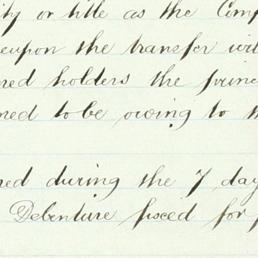 ity or title as the Comp
eupon the transfer wi
red holders the princ
med to be owing to th
red during the 7 day
Debenture fixced for p